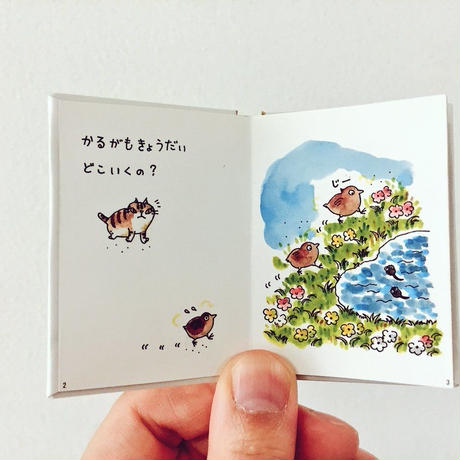 かるがもきょうだい
どこいくの?
じー
2
3